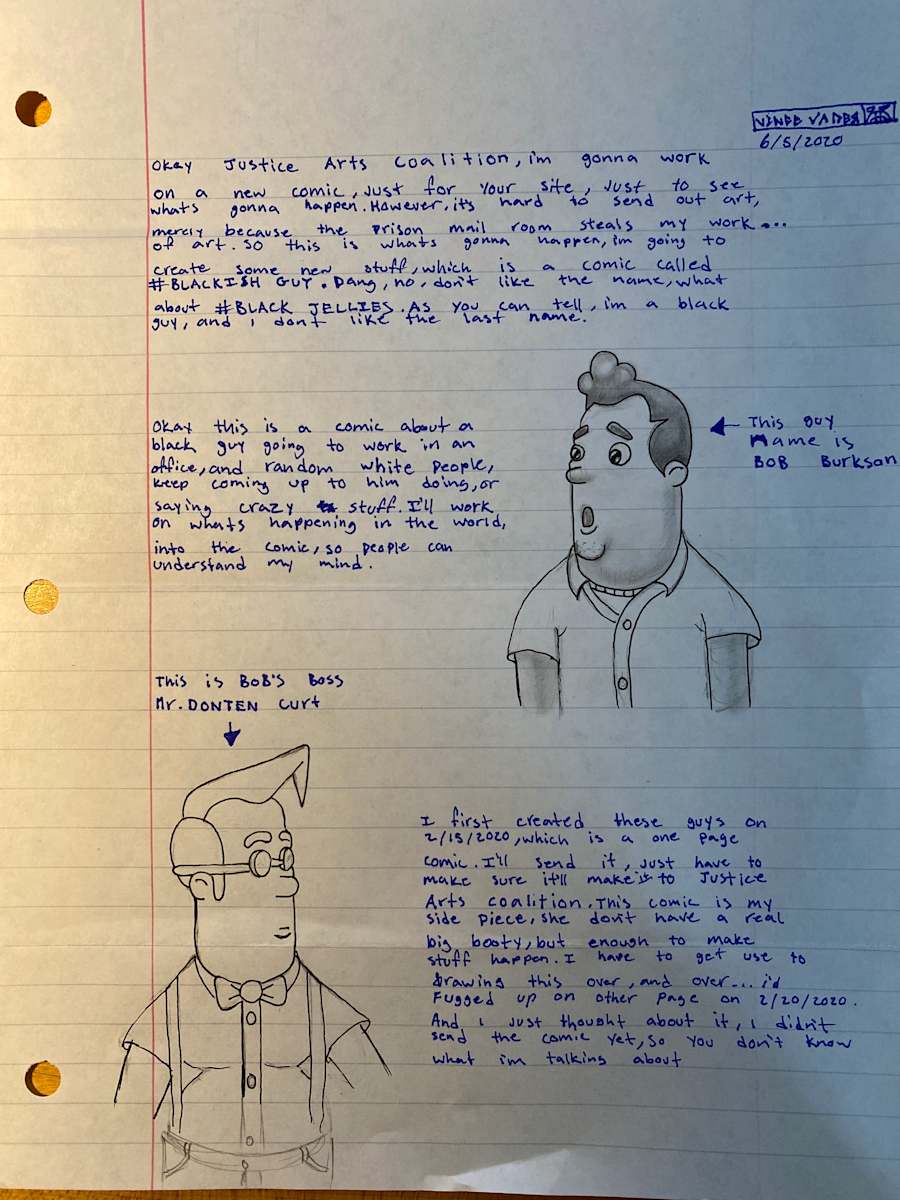 VINCE VADER
6/5/2020
Okay Justice Arts Coalition, im gonna work
on a new comic, just for your site, just to see
whats gonna happen. However, it's hard to send out art,
merely because the prison mail room steals my work...
of art. So this is whats gonna happen, im going to
create some new stuff, which is a comic called
#BLACKISH GUY. Dang, no, don't like the name, what
about #BLACK JELLIES. As you can tell, im a black
guy, and i don't like the last name.
Okay this is a comic about a
black guy going to work in an
office, and random white people,
keep coming up to him doing, or
saying crazy stuff. I'll work
on whats happening in the world,
into the comic, so people can
understand my mind.
This guy
Name is
BOB BURKSON
This is BOB'S Boss
Mr. DONTEN Curt
I first created these guys on
2/15/2020, which is a one page
comic. I'll send it, just have to
make sure it'll make it to Justice
Arts coalition. This comic is my
side piece, she don't have a real
big booty, but enough to make
stuff happen. I have to get use to
drawing this over, and over... i'd
Fugged up on other page on 2/20/2020.
And i just thought about it, i didn't
send the comic yet, so you don't know
what im talking about